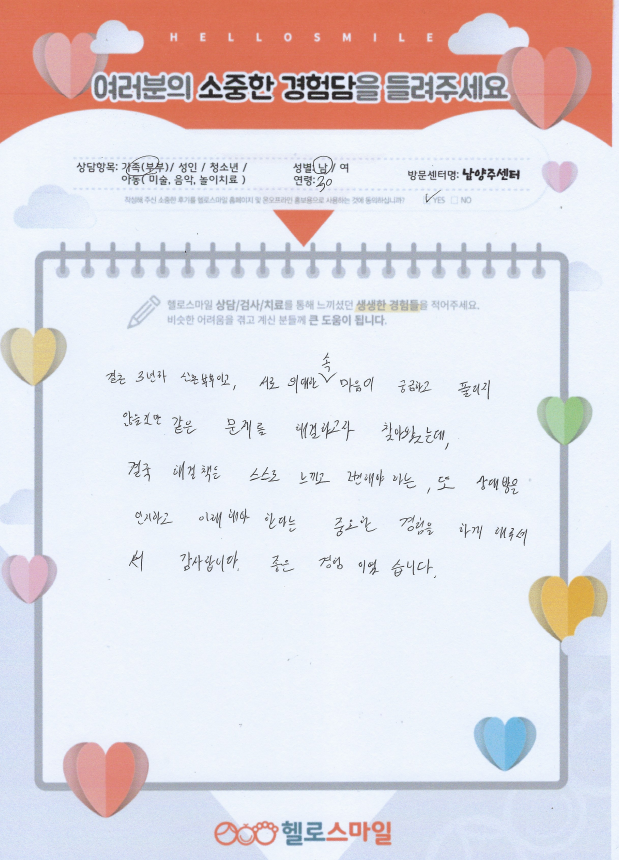 HELLOSMILE
여러분의 소중한 경험담을 들려주세요
상담항목: 가족(부부)/ 성인 / 청소년 /
아동( 미술, 음악, 놀이치료 )
성별: 남 / 여
연령: 30
방문센터명: 남양주센터
작성해 주신 소중한 후기를 헬로스마일 홈페이지 및 온오프라인 홍보용으로 사용하는 것에 동의하십니까? ✓ YES □ NO
헬로스마일 상담/검사/치료를 통해 느끼셨던 생생한 경험들을 적어주세요.
비슷한 어려움을 겪고 계신 분들께 큰 도움이 됩니다.
결혼 3년차 신혼부부이고, 서로 속 마음이 궁금하고 풀리지
않을것만 같은 문제를 해결하고자 찾아왔는데,
결국 해결책은 스스로 느끼고 해야 하는, 또 상대방을
인지하고 이해 해야 한다는 중요한 경험을 하게 해주셔
서 감사합니다. 좋은 경험 이었 습니다.
헬로스마일